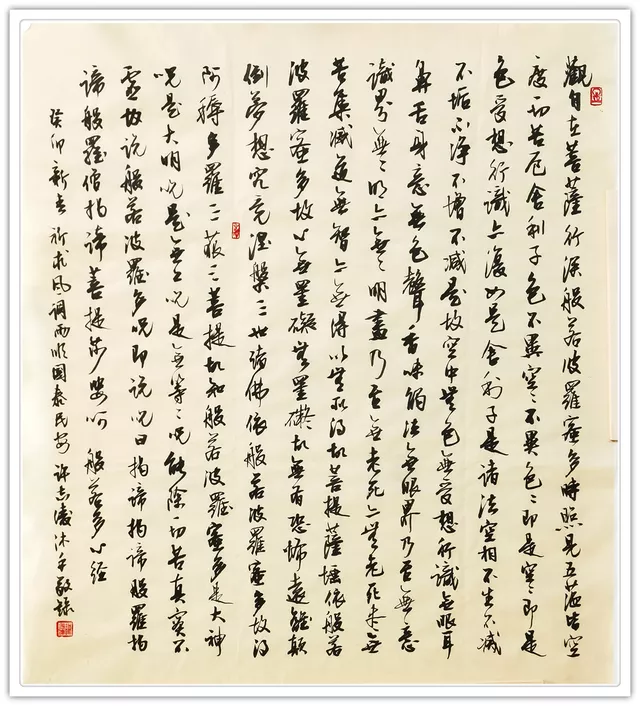 觀自在菩薩行深般若波羅蜜多時照見五蕴皆空
度一切苦厄舍利子色不異空空不異色色即是空空即是
色受想行識亦復如是舍利子是諸法空相不生不滅
不垢不净不增不減是故空中無色無受想行識無眼耳
鼻舌身意無色聲香味觸法無眼界乃至無意
識界無無明亦無無明盡乃至無老死亦無老死盡無
苦集滅道無智亦無得以無所得故菩提薩埵依般若
波羅蜜多故心無罣礙無罣礙故無有恐怖遠離顛
倒夢想究竟涅槃三世諸佛依般若波羅蜜多故得
阿耨多羅三藐三菩提故知般若波羅蜜多是大神
咒是大明咒是無上咒是無等等咒能除一切苦真實不
虚故説般若波羅多咒即説咒曰揭諦揭諦般羅揭
諦般羅僧揭諦菩提薩婆訶 般若多心經
癸卯新春祈求風調雨順國泰民安 許志濤沐手敬録